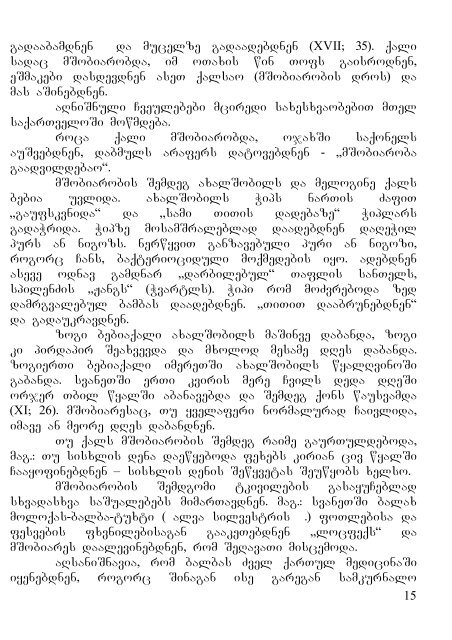 გადააბამდნენ და მუცელზე გადაადებდნენ (XVII; 35). ქალი
სადაც მშობიარობდა, იმ ოთახის წინ თოფს გაისროდნენ,
ეშმაკები დასდევდნენ ასეთ ქალსაო (მშობიარობის დროს) და
მას აშინებდნენ.
აღნიშნული ჩვეულებები მცირედი სახესხვაობებით მთელ
საქართველოში მოწმდება.
როცა ქალი მშობიარობდა, ოჯახში საქონელს
აუშვებდნენ, დაბმულს არაფერს დატოვებდნენ - „მშობიარობა
გაადვილდებაო“.
მშობიარობის შემდეგ ახალშობილს და მელოგინე ქალს
ბებია უვლიდა. ახალშობილს ჭიპს ნართის ძაფით
„გაუფსკვნიდა“ და „სამი თითის დადებაზე“ ჭიპლარს
გადაჭრიდა. ჭიპზე მოსაშრალებლად დაადებდნენ დაღეჭილ
პურს ან ნიგოზს. ნერწყვით განზავებული პური ან ნიგოზი,
როგორც ჩანს, ბაქტერიოციდული მოქმედების იყო. ადებდნენ
ასევე ოდნავ გამდნარ „დარბილებულ“ თაფლის სანთელს,
სპილენძის „ჟანგს“ (ჭვარტლს). ჭიპი რომ მოძვრებოდა ზედ
დამრგვალებულ ბამბას დაადებდნენ. „თითით დააბრუნებდნენ“
და გადაუკრავდნენ.
ზოგი ბებიაქალი ახალშობილს მაშინვე დაბანდა, ზოგი
კი პირდაპირ შეახვევდა და მხოლოდ მესამე დღეს დაბანდა.
ზოგიერთი ბებიაქალი იმერეთში ახალშობილს წყალღვინოში
გაბანდა. სვანეთში ერთი კვირის მერე ჩვილს დედა დღეში
ორჯერ თბილ წყალში აბანავებდა და შემდეგ ქონს წაუსვამდა
(XI; 26). მშობიარესაც, თუ ყველაფერი ნორმალურად ჩაივლიდა,
იმავე ან მეორე დღეს დაბანდნენ.
თუ ქალს მშობიარობის შემდეგ რაიმე გაურთულდებოდა,
მაგ.: თუ სისხლის დენა დაეწყებოდა ფეხებს კირიან ცივ წყალში
ჩააყოფინებდნენ – სისხლის დენის შეწყვეტას შეუწყობს ხელსო.
მშობიარობის შემდგომი ტკივილების გასაყუჩებლად
სხვადასხვა საშუალებებს მიმართავდნენ. მაგ.: სვანეთში ბალახ
მოლოქას-ბალბა-ტუხტი ( ალვა სილვესტრის .) ფოთლებისა და
ფესვების ფხვნილებისაგან გააკეთებდნენ „ლოცფექს“ და
მშობიარეს დაალევინებდნენ, რომ შეღავათი მისცემოდა.
აღსანიშნავია, რომ ბალბას ძველ ქართულ მედიცინაში
იყენებდნენ, როგორც შინაგან ისე გარეგან სამკურნალო
15